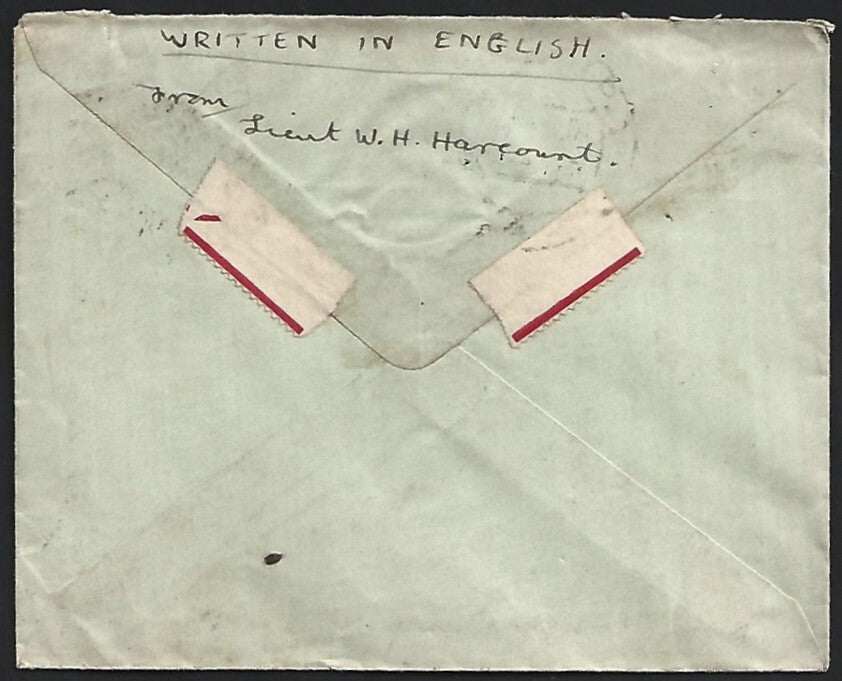 WRITTEN IN ENGLISH.
From
Lieut W. H. Harcourt.